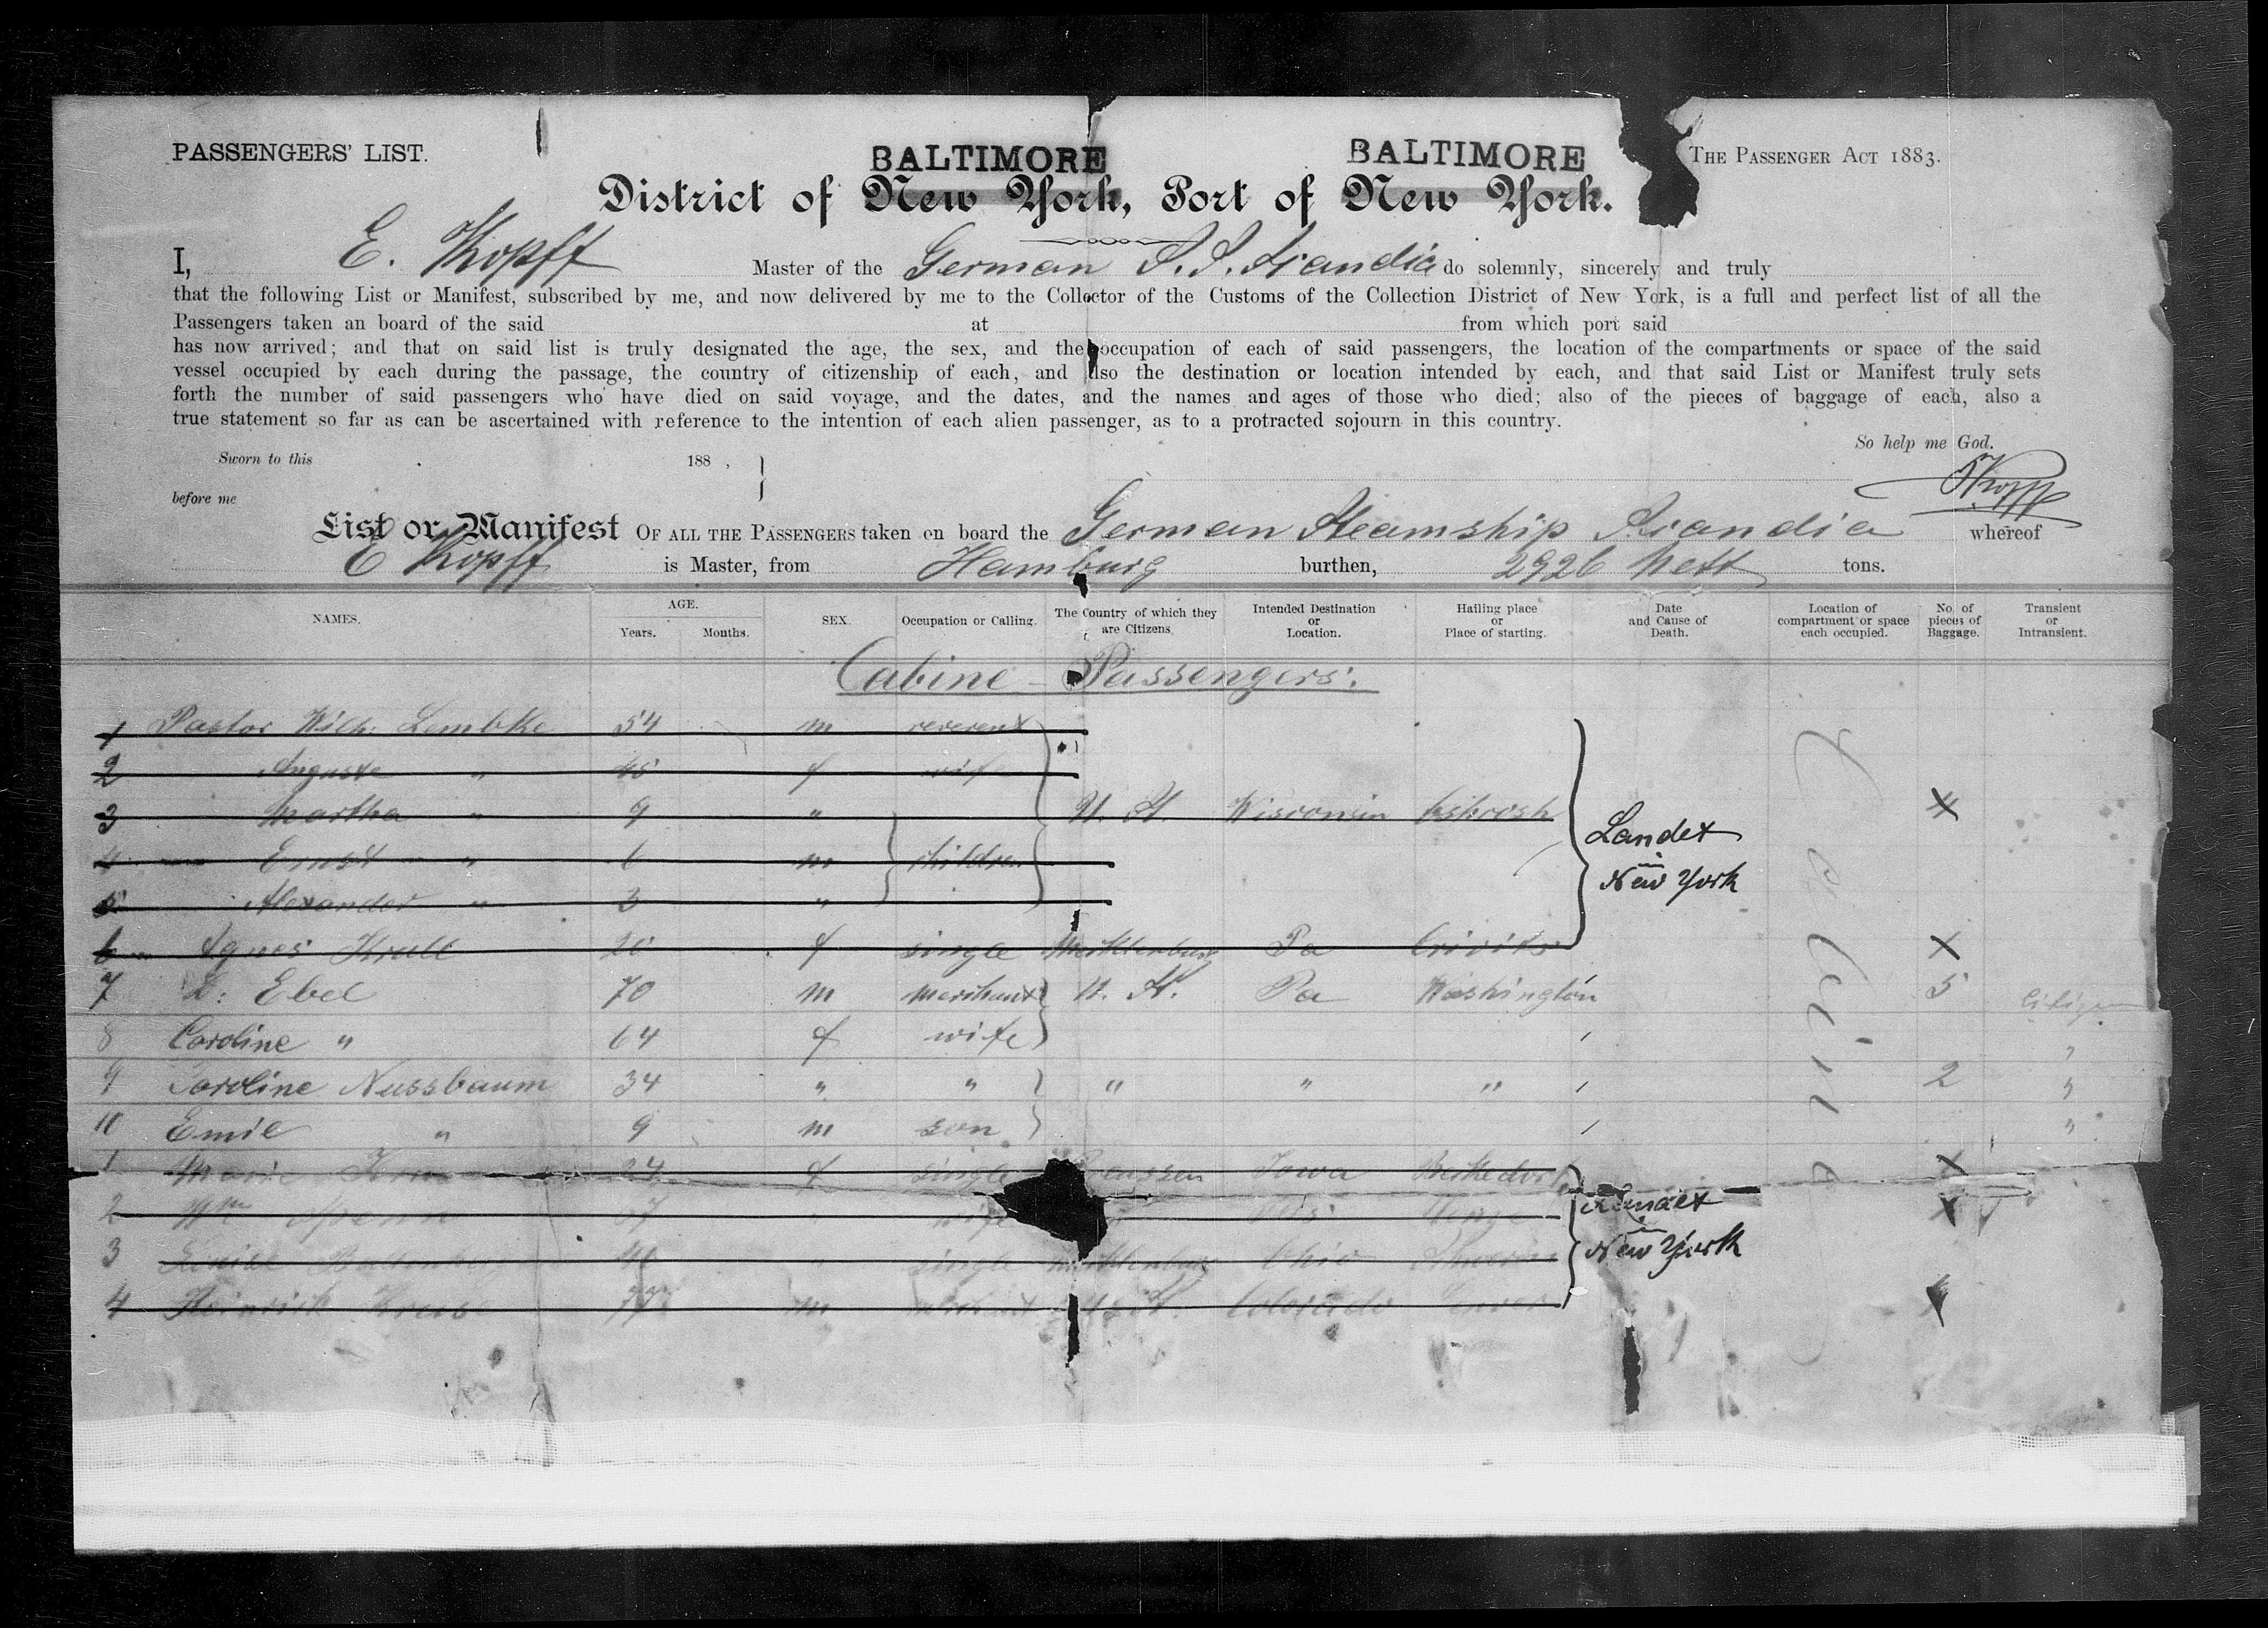 PASSENGERS' LIST.
BALTIMORE BALTIMORE
THE PASSENGER ACT 1883.
District of New York, Port of New York.
I, E. Kopff Master of the German S.S. Scandia do solemnly, sincerely and truly
that the following List or Manifest, subscribed by me, and now delivered by me to the Collector of the Customs of the Collection District of New York, is a full and perfect list of all the
Passengers taken an board of the said at from which port said
has now arrived; and that on said list is truly designated the age, the sex, and the occupation of each of said passengers, the location of the compartments or space of the said
vessel occupied by each during the passage, the country of citizenship of each, and also the destination or location intended by each, and that said List or Manifest truly sets
forth the number of said passengers who have died on said voyage, and the dates, and the names and ages of those who died; also of the pieces of baggage of each, also a
true statement so far as can be ascertained with reference to the intention of each alien passenger, as to a protracted sojourn in this country.
So help me God.
Sworn to this 188 ,
before me
Kopff
List or Manifest OF ALL THE PASSENGERS taken on board the German Steamship Scandia whereof
E Kopff is Master, from Hamburg burthen, 2926 Nett tons.
NAMES. AGE. Years. Months. SEX. Occupation or Calling. The Country of which they are Citizens. Intended Destination or Location. Hailing place or Place of starting. Date and Cause of Death. Location of compartment or space each occupied. No. of pieces of Baggage. Transient or Intransient.
Cabine - Passengers.
1 Pastor Wilh. Lembke 54 m reverent
2 Auguste " 45 f wife
3 Martha " 9 " U. St. Wisconsin X
4 Ernst " 6 m children
5 Alexander " 3 "
Landet
in
New York
6 Agnes Krull 20 f single Mecklenburg Pa Crivits X
7 L. Ebel 70 m merchant U. St. Pa Washington 5 Citizen
8 Caroline " 64 f wife "
9 Caroline Nussbaum 34 " " " " " 2 "
10 Emil " 9 m son "
1 Marie 24 f single Preussen Iowa X
2 67 " wife X
3 " single Mecklenburg Ohio Schwerin
Landet
in
New York
4 Heinrich m merchant U. St. Colorado